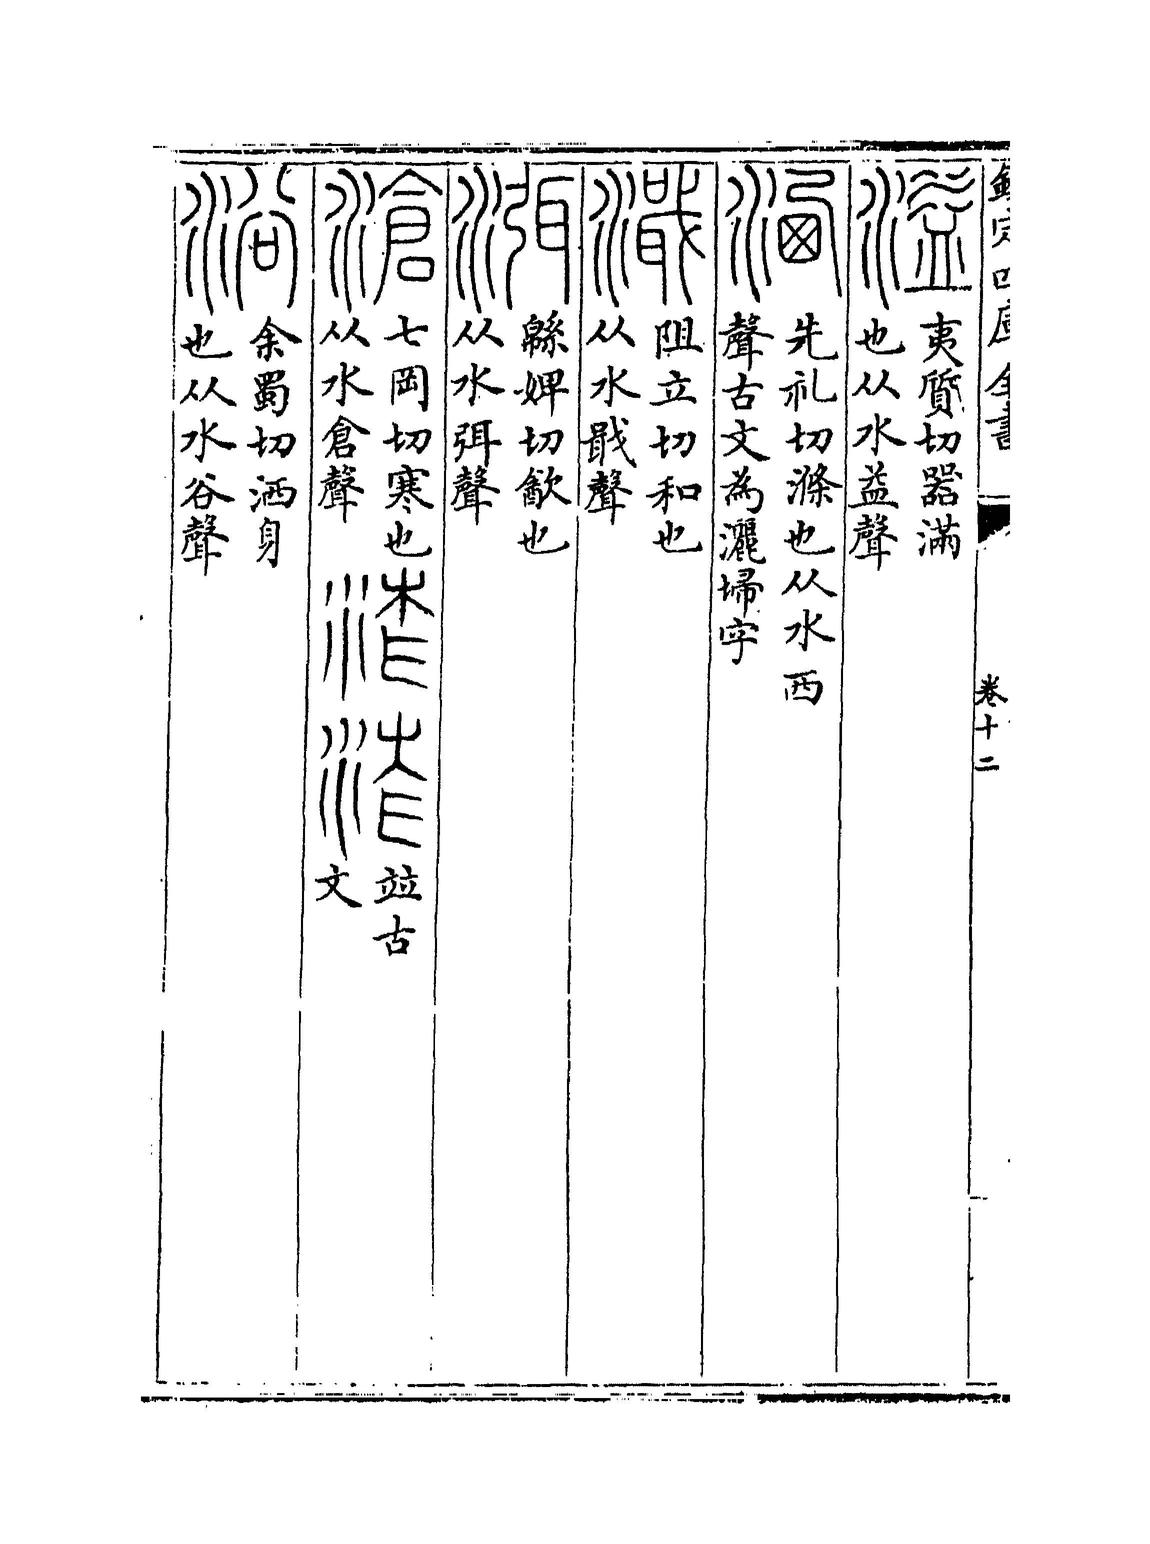 欽定四庫全書
卷十二
溢
夷質切器滿
也从水益聲
洒
先礼切滌也从水西
聲古文為灑埽字
濈
阻立切和也
从水戢聲
渳
緜婢切㱃也
从水弭聲
滄
七岡切寒也
从水倉聲
竝古
文
浴
余蜀切洒身
也从水谷聲